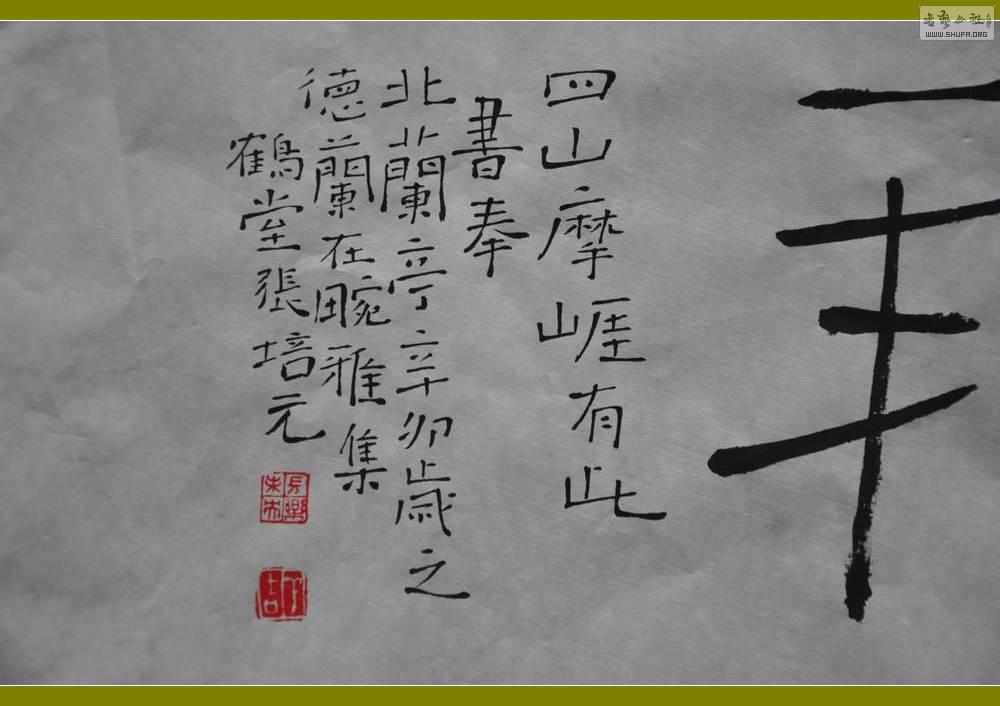 四山摩崖有此
書奉
北蘭亭辛卯歲之
德蘭在畹雅集
鶴堂張培元
長樂未央
書法公社
WWW.SHUFA.ORG